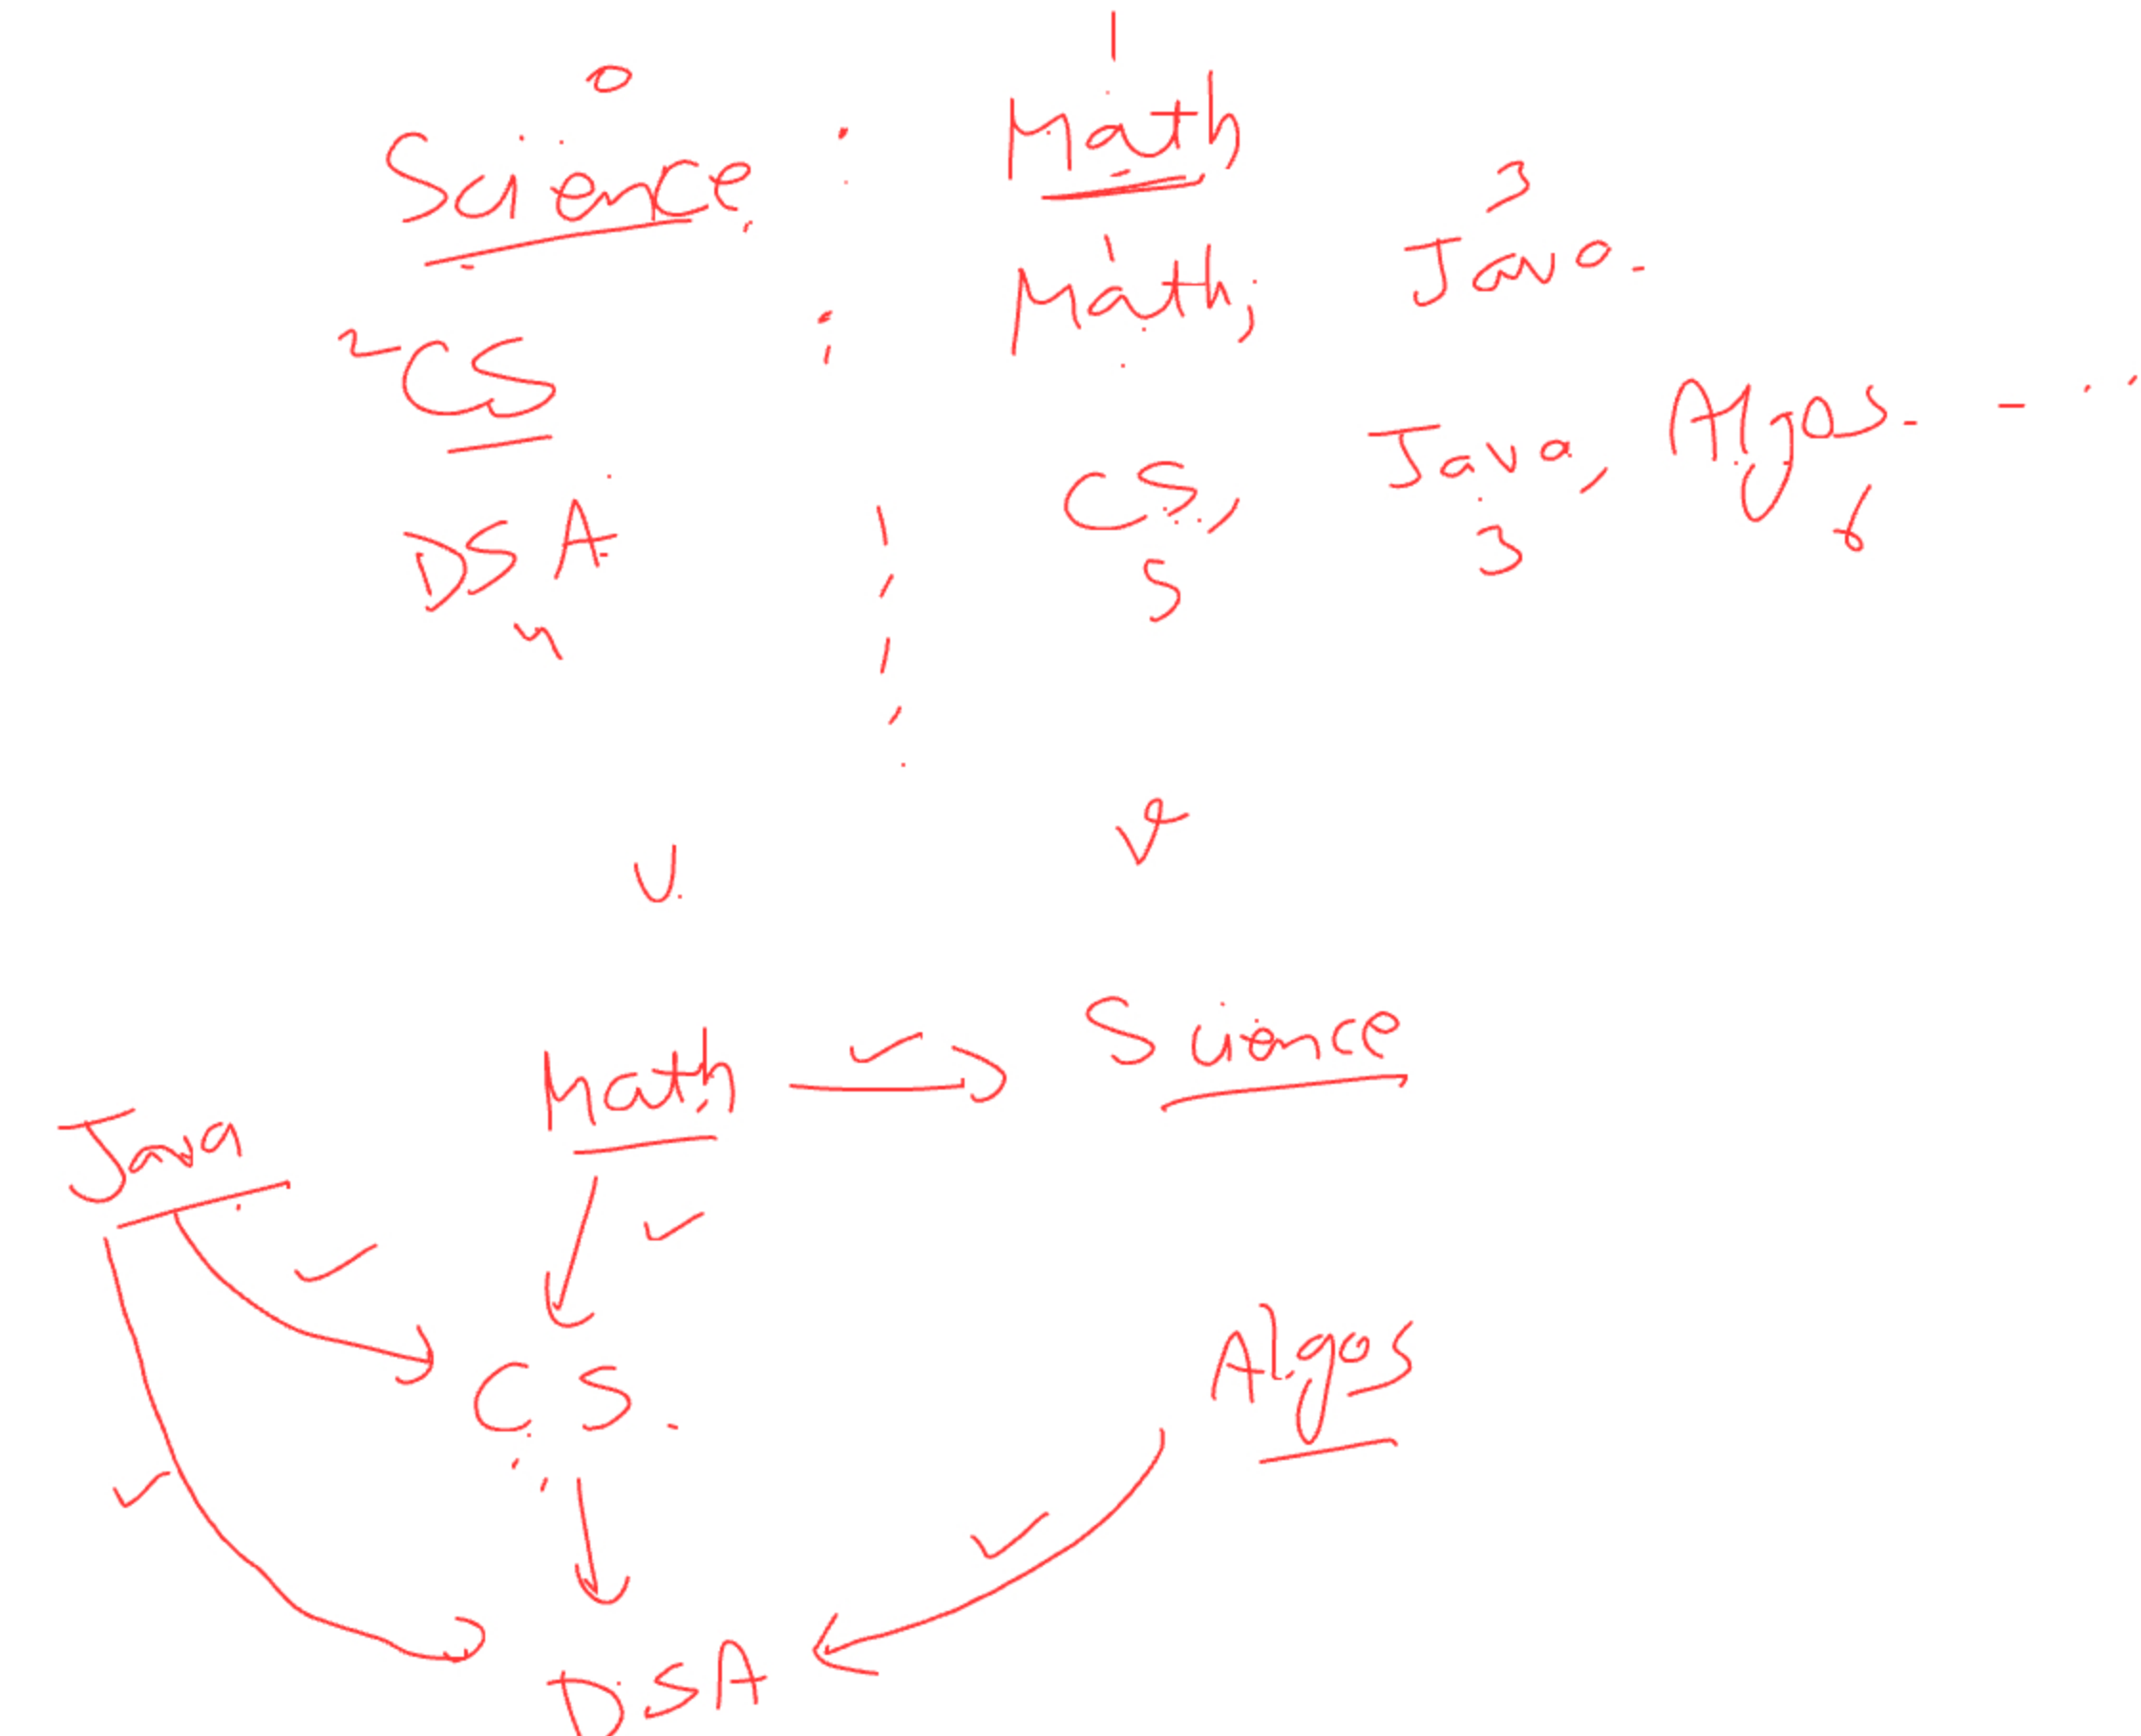 0 1
Science : Math
3
2 CS : Math; Java
DSA CS, Java, Algos
5 3 6
U. V
Math → Science
Java
C.S. Algos
DSA